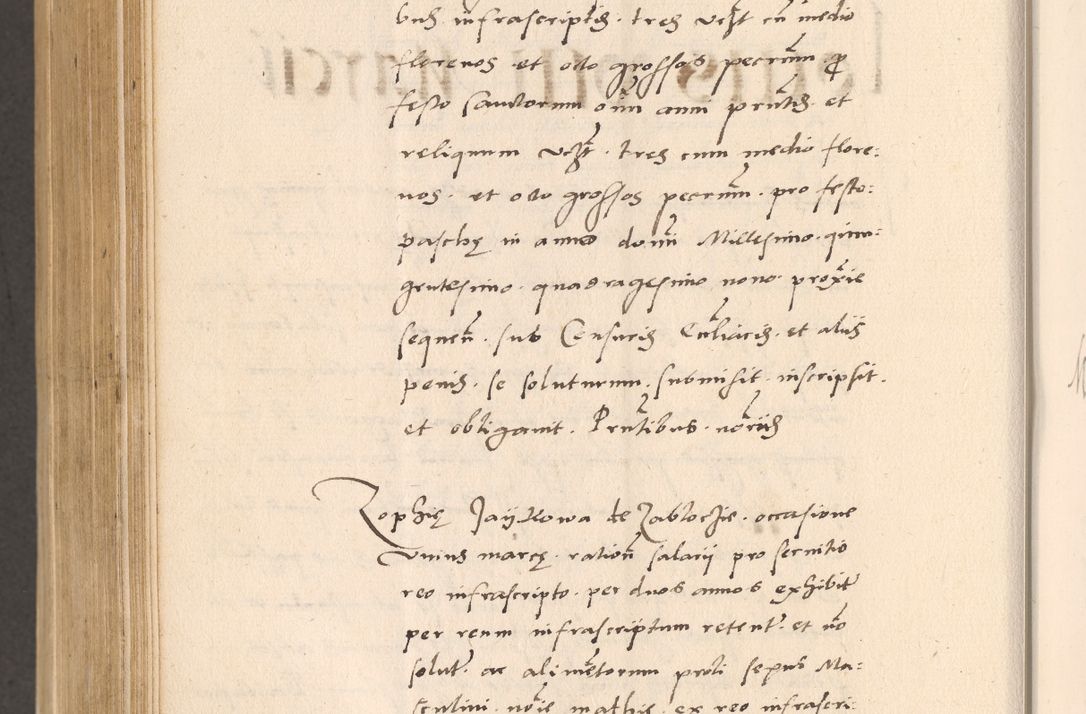 bus infrascriptis. tres vczt cu medio
florenos et octo grossos pecrum p
festo sanctorum oim anni prntis. et
reliquum vczt. tres cum medio flore:
nos. et octo grossos pecrum. pro festo:
paschę in anno domi Millesimo. quin:
gentesimo. quadragesimo nono. proxie
sequen. sub Censuris Eccliacis. et aliis
penis. se soluturum. submisit. inscripsit.
et obligauit. Prntibus. noriis
Zophię Jaykowa de Zablocie. occasione
vnius marcę. ration salarii pro seruitio
reo infrascripto. per duos annos exhibit
per reum infrascriptum retent. et no
solut. ac alimetorum proli sepus Ma:
sculini. nois mathie. ex reo infrascri: